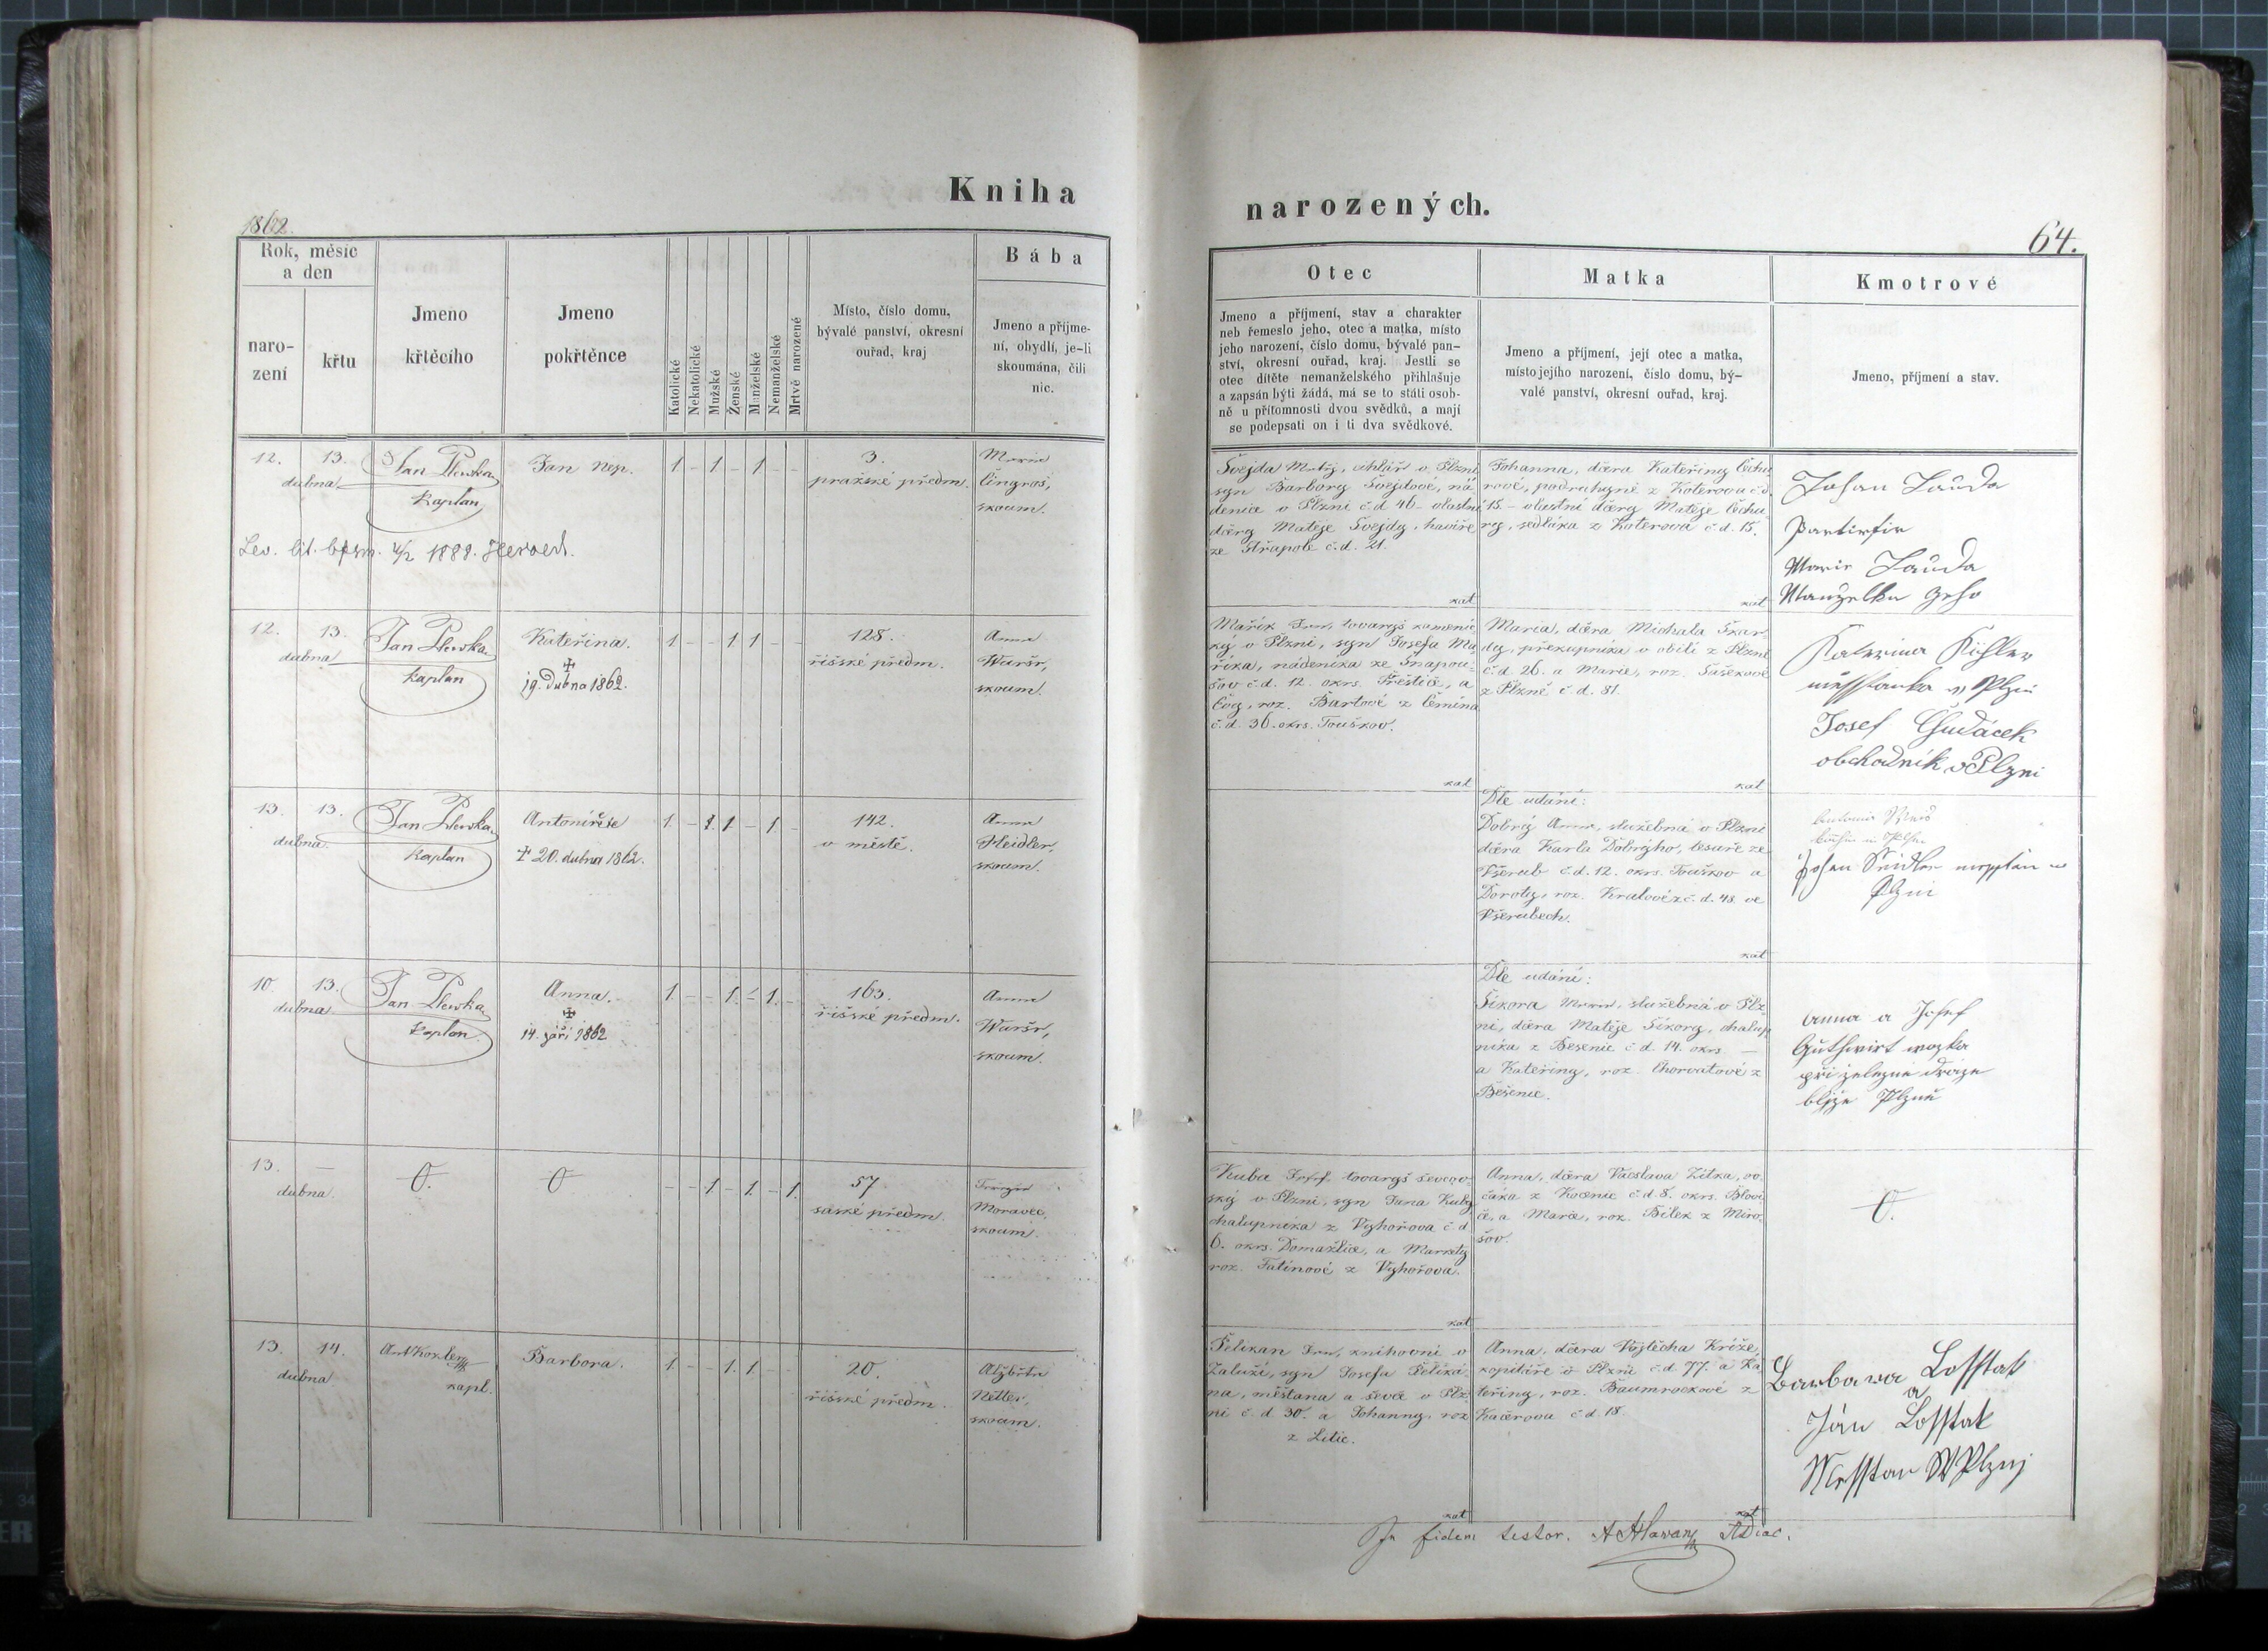 Kniha
narozených.
1862.
64.
Rok, měsíc
a den
naro-
zení
křtu
Jmeno
křtěcího
Jmeno
pokřtěnce
Katolické
Nekatolické
Mužské
Ženské
Manželské
Nemanželské
Mrtvě narozené
Místo, číslo domu,
bývalé panství, okresní
ouřad, kraj
Bába
Jmeno a příjme-
ní, obydlí, je-li
skoumána, čili
nic.
Otec
Jmeno a příjmení, stav a charakter
neb řemeslo jeho, otec a matka, místo
jeho narození, číslo domu, bývalé pan-
ství, okresní ouřad, kraj. Jestli se
otec dítěte nemanželského přihlašuje
a zapsán býti žádá, má se to státi osob-
ně u přítomnosti dvou svědků, a mají
se podepsati on i ti dva svědkové.
Matka
Jmeno a příjmení, její otec a matka,
místo jejího narození, číslo domu, bý-
valé panství, okresní ouřad, kraj.
Kmotrové
Jmeno, příjmení a stav.
12. 13.
dubna
Jan Plewka
kaplan
Jan Nep.
1 - 1 - 1 - -
3.
pražské předm.
Maria
Čingroš,
skoum.
1888.
Švejda Matěj, uhlář v Plzni
syn Barbory Švejdové, ná
denice v Plzni č.d 46 - vlastní
dcery Matěje Švejdy, havíře
ze Střapole č.d. 21.
kat
Johanna, dcera Kateřiny Čechu
rové, podruhyně z Koterova č d.
15. - vlastní dcery Matěje Čechu
ry, sedláka z Koterova č.d. 15.
kat
Johan Lauda
Marie Lauda
Manzelka geho
12. 13.
dubna
Jan Plewka
kaplan
Kateřina.
19. dubna 1862.
1 - - 1 1 - -
128.
říšské předm.
Anna
Wuršr,
skoum.
Mařík Jan, tovaryš kamenic
ký v Plzni, syn Josefa Ma
říka, nádeníka ze Šnapou
šov č.d. 12. okrs. Přeštice, a
Evy, roz. Bartové z Čemína
č.d. 36. okrs. Touškov.
kat
Maria, dcera Michala Škar
dy, překupníka v obilí z Plzně
č.d. 26. a Marie, roz. Sašekové
z Plzně č d. 81.
kat
Katerina Pichler
měsstanka w Plzni
Josef Chudáček
obchodník v Plzni
13. 13.
dubna
Jan Plewka
kaplan
† 20. dubna 1862.
142.
v městě.
Anna
Heidler,
skoum.
Dle udání:
Dobrý Anna, služebná v Plzni
dcera Karla Dobrýho, tesaře ze
Všerub č.d. 12. okrs. Touškov a
Doroty, roz. Kralové z č.d. 48. ve
Všerubech.
kat
Plzni
10. 13.
dubna
Jan Plewka
kaplan.
Anna.
14. září 1862
1. - - 1. - 1. -
163.
říšské předm.
Anna
Wuršr,
skoum.
Dle udání:
Sikora Marie, služebná v Plz
ni, dcera Matěje Sikory, chalup
níka z Bešenic č d. 14. okrs. —
a Kateřiny, roz. Chorvatové z
Bešenic.
Anna a Josef
Guthwirt wozka
při zelezne draze
blíze Plzně
13. —
dubna.
O. O
- - 1. - 1. - 1.
57
saské předm.
Moravec,
skoum.
Kuba Josef, tovaryš ševcov
ský v Plzni, syn Jana Kuby
chalupníka z Výhořova č d
6. okrs. Domažlice, a Markéty
roz. Tatínové z Výhořova.
kat
Anna, dcera Václava Zítka, ov
čáka z Kocenic č.d. 8. okrs. Blovi
ce, a Marie, roz. Bílek z Miro
šov.
O.
13. 14.
dubna
Ant Koxler
kapl.
Barbora.
1. - - 1. 1. - -
20.
říšské předm.
Alžběta
Netler,
skoum.
Pelikan Jan, knihovní v
Zaluží, syn Josefa Peliká
na, měšťana a ševce v Plz
ni č. d. 30. a Johanny, roz
z Litic.
kat
Anna, dcera Vojtěcha Kříže,
kopináře v Plzni č.d 77. a Ka
teřiny, roz. Baumrockové z
Kačerova č d. 18.
kat
Barbara Losstak
a
Ján Losstak
Messtan W Plznj
In fidem testor.